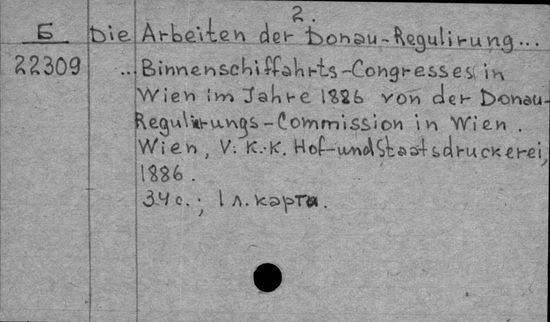 2.
Б Die Arbeiten der Donau-Regulirung...
22309 ...Binnenschiffahrts-Congresses in
Wien im Jahre 1886 von der Donau-
Regulirungs-Commission in Wien.
Wien, V. K.-K. Hof-und Staatsdruckerei,
1886.
34 с.; 1 л. карта.